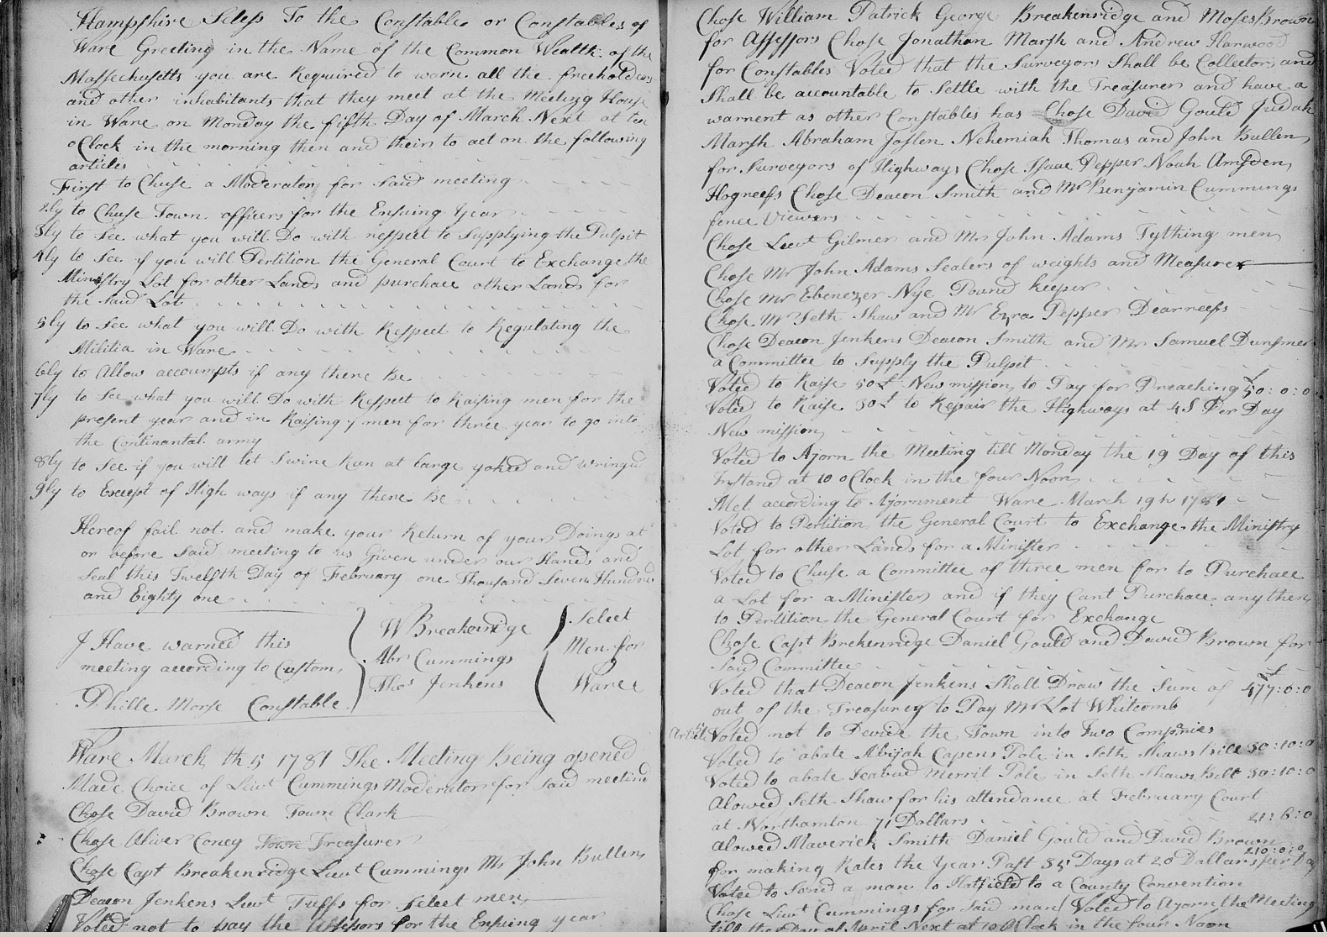 Hampshire Seless To the Constable or Constables of
Ware Greeting in the Name of the Common Wealth of the
Massechusetts you are Required to warn all the freeholders
and other inhabitants that they meet at the Meeting House
in Ware on Monday the fifth Day of March Next at ten
oClock in the morning then and theirs to act on the following
articles
First to Chuse a Moderator for Said meeting
2ly to Chuse Town officers for the Ensuing Year
3ly to See what you will Do with respect to Supplying the Pulpit
4ly to See if you will Pertition the General Court to Exchange the
Ministry Lot for other Lands and purchace other Lands for
the Said Lot
5ly to See what you will Do with Respect to Regulating the
Militia in Ware
6ly to Allow accoumpts if any there Be
7ly to See what you will Do with Respect to Raising men for the
present year and in Raising 7 men for three year to go into
the Continantal army
8ly to See if you will let Swine Run at large yoked and wringed
9ly to Except of High ways if any there Be
Hereof fail not and make your Return of your Doings at
or before Said meeting to us Given under our Hands and
Seal this Twelfth Day of February one Thousand Seven Hundred
and Eighty one
I Have warned this
meeting according to Custom
Phille Morse Constable
W Breakenridge
Abr Cummings
Thos Jenkens
Select
Men for
Ware
Ware March th 5 1781 The Meeting Being opened
Made Choice of Lieut Cummings Moderator for Said meeting
Chose David Brown Town Clark
Chose Oliver Coney Town Treasurer
Chose Capt Breakenridge Lieut Cummings Mr John Bullen
Deacon Jenkens Lieut Tuffs for Select men
Voted not to pay the Assessors for the Ensuing year
Chose William Patrick George Breakenridge and Moses Brown
for Assessors Chose Jonathan Marsh and Andrew Harwood
for Constables Voted that the Surveyors Shall be Collectors and
Shall be accountable to Settle with the Treasurer and have a
warrent as other Constables has Chose David Gould Judah
Marsh Abraham Joslen Nehemiah Thomas and John Bullen
for Surveyors of Highways Chose Isaac Pepper Noah Amsden
Hogreefs Chose Deacon Smith and Mr Benjamin Cummings
fence Viewers
Chose Lieut Gilmer and Mr John Adams Tything men
Chose Mr John Adams Sealers of weights and Measures
Chose Mr Ebenezer Nye Pound keeper
Chose Mr Seth Shaw and Mr Ezra Pepper Dearreefs
Chose Deacon Jenkens Deacon Smith and Mr Samuel Dunsmer
a Committee to Supply the Pulpit
Voted to Raise 50£ New mission to Pay for Preaching £50:0:0
Voted to Raise 30£ to Repair the Highways at 4S Per Day
New mission
Voted to Ajorn the Meeting till Monday the 19 Day of this
Instand at 10 oClock in the four Noon
Met according to Ajornment Ware March 19th 1781
Voted to Pertition the General Court to Exchange the Ministry
Lot for other Lands for a Minister
Voted to Chuse a Committee of three men for to Purchace
a Lot for a Minister and if they Cant Purchace any then
to Pertition the General Court for Exchange
Chose Capt Brekenridge Daniel Gould and David Brown for
Said Committee
Voted that Deacon Jenkens Shall Draw the Sum of £477:0:0
out of the Treasurey to Pay Mr Lot Whitcomb
Voted not to Devide the Town into Two Companies
Voted to abate Abijah Capens Pole in Seth Shaws Bill 30:10:0
Voted to abate Seabed Merrit Pole in Seth Shaws Bill 30:10:0
Alowed Seth Shaw for his attendance at February Court
at Northamton 71 Dollars 21:6:0
Alowed Maverick Smith Daniel Gould and David Brown
for making Rates the Year Past 35 Days at 20 Dollars per Day 210:0:0
Voted to Send a man to Hatfield to a County Convention
Chose Lieut Cummings for Said man Voted to Ajorn the Meeting
till the Day of April Next at 10 oClock in the four Noon